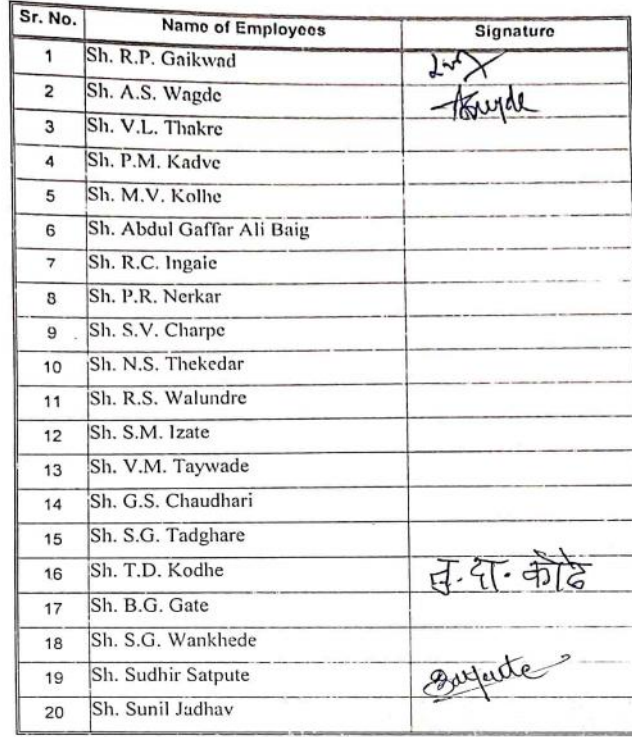 Sr. No. Name of Employees Signature
1 Sh. R.P. Gaikwad
2 Sh. A.S. Wagde
3 Sh. V.L. Thakre
4 Sh. P.M. Kadve
5 Sh. M.V. Kolhe
6 Sh. Abdul Gaffar Ali Baig
7 Sh. R.C. Ingale
8 Sh. P.R. Nerkar
9 Sh. S.V. Charpe
10 Sh. N.S. Thekedar
11 Sh. R.S. Walundre
12 Sh. S.M. Izate
13 Sh. V.M. Taywade
14 Sh. G.S. Chaudhari
15 Sh. S.G. Tadghare
16 Sh. T.D. Kodhe दा. कोढे
17 Sh. B.G. Gate
18 Sh. S.G. Wankhede
19 Sh. Sudhir Satpute Satpute
20 Sh. Sunil Jadhav